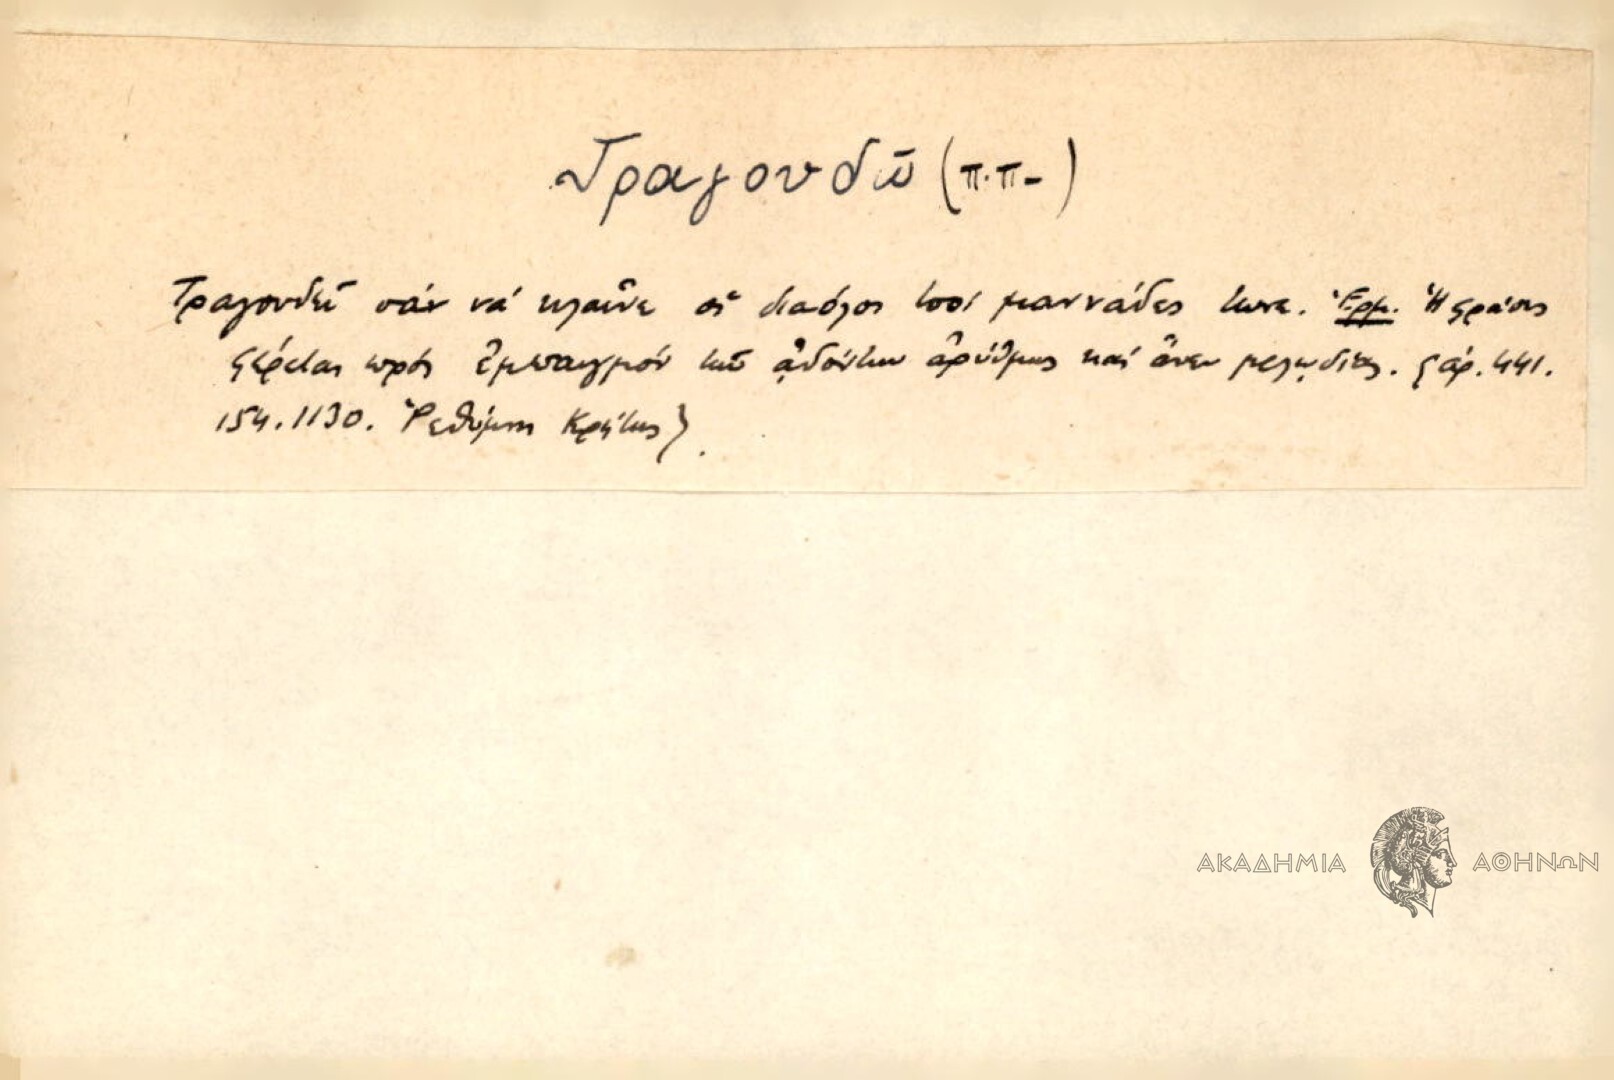 Τραγουδῶ (π.π-)
Τραγουδεῖ σάν νά κλαῖνε οἱ διαόλοι τσοί μαννάδες τωνε. Ἑρμ. Ἡ φράσις
φέρεται πρός ἐμπαιγμόν τῶν ᾀδόντων ἀρύθμως καί ἄνευ μελῳδίας. {ἀρ. 441.
154. 1130. Ῥεθύμνη Κρήτης}.
ΑΚΑΔΗΜΙΑ ΑΘΗΝΩΝ